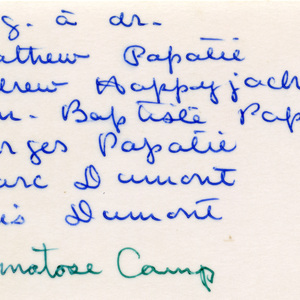 g. à dr.
athew Papatie
drew Happyjack
n. Baptiste Pap
rges Papatie
arc Dumont
is Dumont
matose Camp